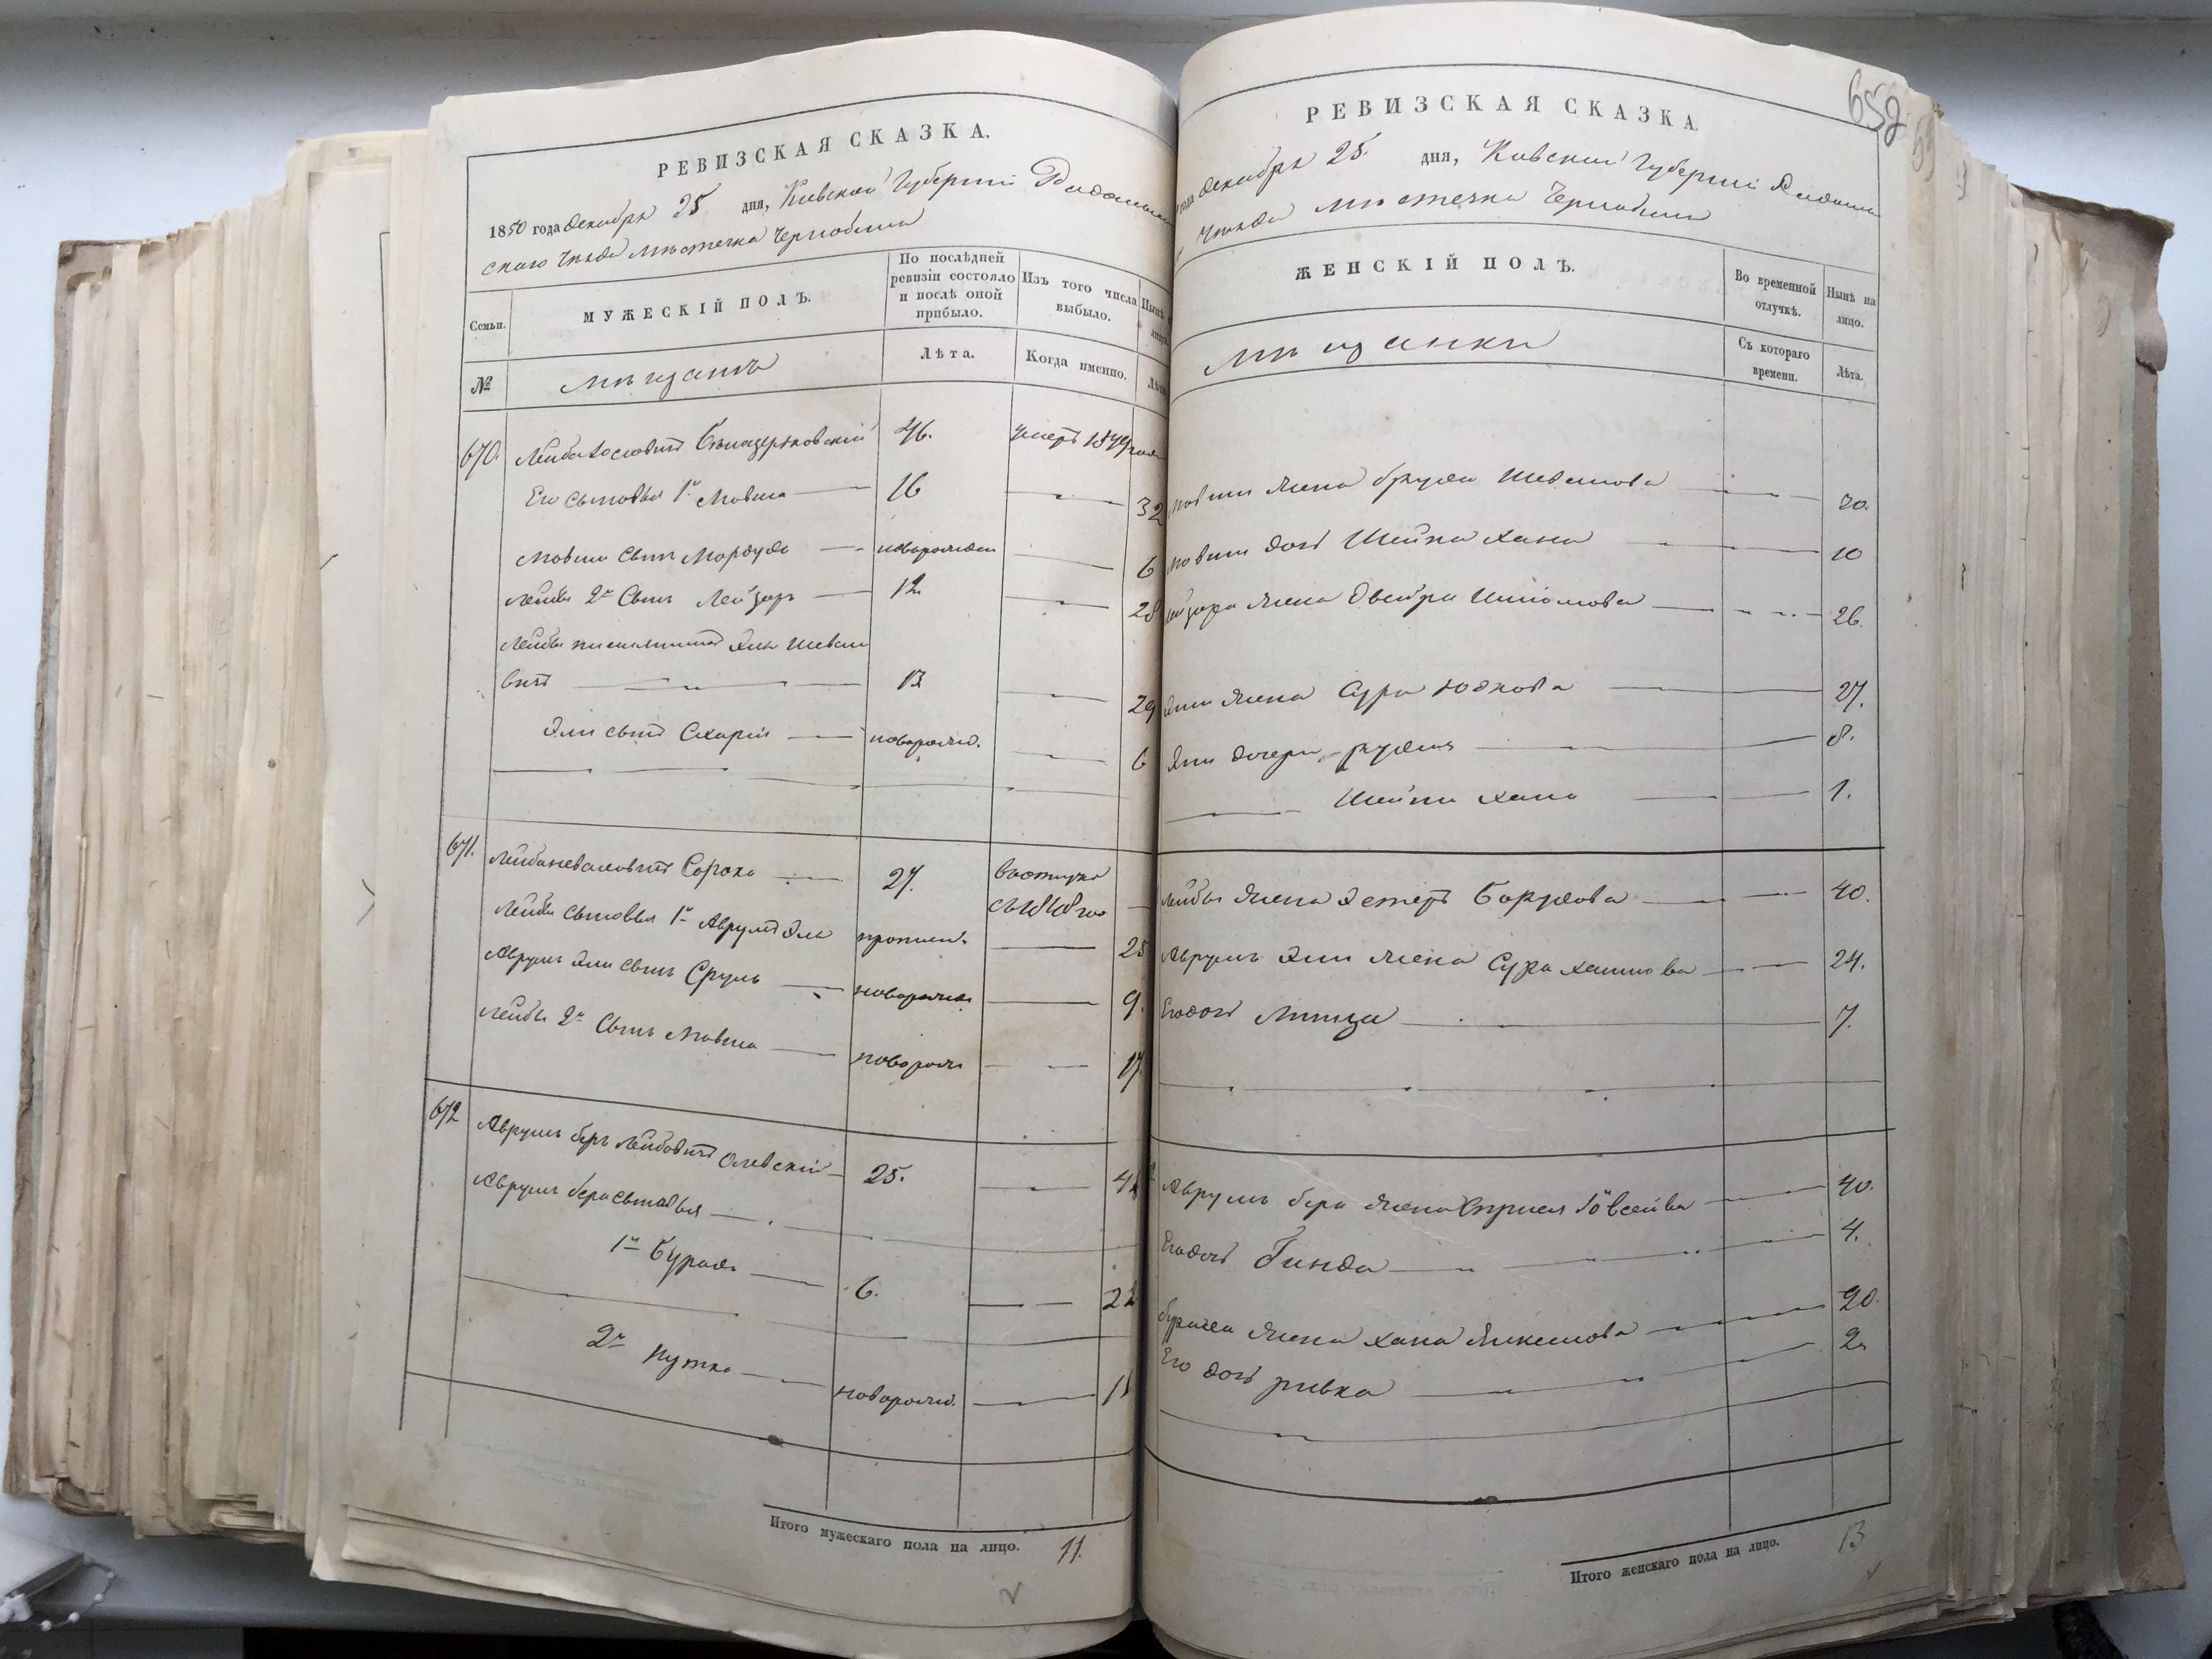 РЕВИЗСКАЯ СКАЗКА.
1850 года декабря 25 дня, Киевской Губернiи Радомысль
скаго Уѣзда мѣстечка Чернобыля
Семьи.
МУЖЕСКIЙ ПОЛЪ.
По послѣдней ревизiи состояло и послѣ оной прибыло.
Изъ того числа выбыло.
Нынѣ
№
мѣщанъ
Лѣта.
Когда именно.
670.
Лейба Бѣлоцерковскiй
46.
умеръ 1849 года
Его сыновья 1й Мовша
16
32
Мовши сынъ Мордухъ
новорожден
6
Лейбы 2й Сынъ Лейзоръ
12
28
Лейбы племянникъ Эля
вичъ
13
29
Эли сынъ Сахарiй
новорожд.
6
671.
Лейба Сорока
27.
Лейбы сыновья 1й Аврумъ Эля
пропис.
25
Аврумъ Эли сынъ Сруль
новорожд
9.
Лейбы 2й Сынъ Мовша
новорож
17.
672
Аврумъ беръ Лейбовичъ Олевскiй
25.
41
Аврумъ бера сыновья
1й Бурахъ
6.
22
2й Нутка
новорожд.
Итого мужескаго пола на лицо. 11.
652
РЕВИЗСКАЯ СКАЗКА.
года декабря 25 дня, Киевской Губернiи Радомысль
Уѣзда мѣстечка Чернобыля
ЖЕНСКIЙ ПОЛЪ.
Во временной отлучкѣ.
Нынѣ на лицо.
мѣщанки
Съ котораго времени.
Лѣта.
Мовши жена
30.
Мовши дочь Шейна Хана
10
Лейзора жена Двейра
26.
Эли жена Сура Юдкова
27.
Эли дочери
8.
Шейна Хана
1.
Лейбы жена Эстеръ Борухова
40.
Аврумъ Эли жена Сура Хаимова
24.
Его дочь
7.
Аврумъ бера жена
40.
Его дочь Гинда
4.
Бураха жена Хана
20.
Его дочь Ривка
2.
Итого женскаго пола на лицо. 13